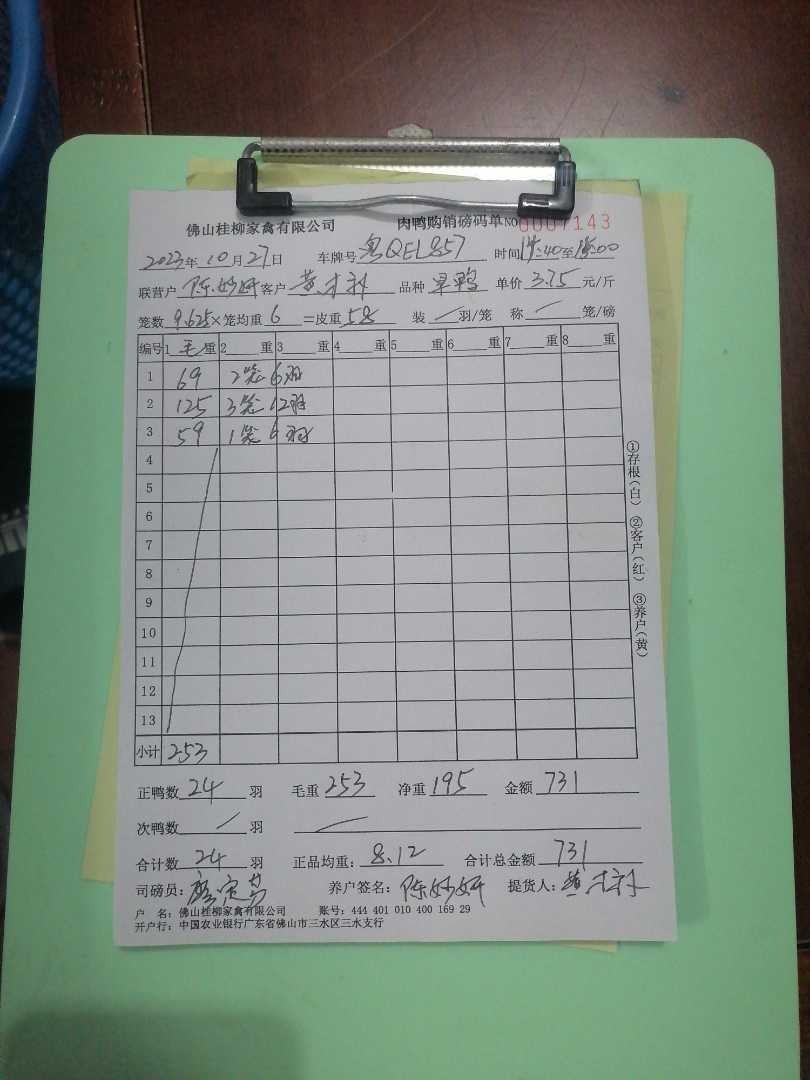 佛山桂柳家禽有限公司 肉鸭购销磅码单 NO 0007143
2023年10月27日 车牌号粤QEL857 时间 14:40至15:00
联营户 陈妙妍 客户 黄才科 品种 果鸭 单价 3.75 元/斤
笼数 9.625×笼均重 6 =皮重 58 装 / 羽/笼 称 / 笼/磅
编号 1 毛重 2 重 3 重 4 重 5 重 6 重 7 重 8 重
1 69 2笼6羽
2 125 3笼12羽
3 59 1笼6羽
4
5
6
7
8
9
10
11
12
13
小计 253
①存根(白) ②客户(红) ③养户(黄)
正鸭数 24 羽 毛重 253 净重 195 金额 731
次鸭数 / 羽 /
合计数 24 羽 正品均重: 8.12 合计总金额 731
司磅员: 养户签名: 陈妙妍 提货人: 黄才科
户 名: 佛山桂柳家禽有限公司 账号: 444 401 010 400 169 29
开户行: 中国农业银行广东省佛山市三水区三水支行